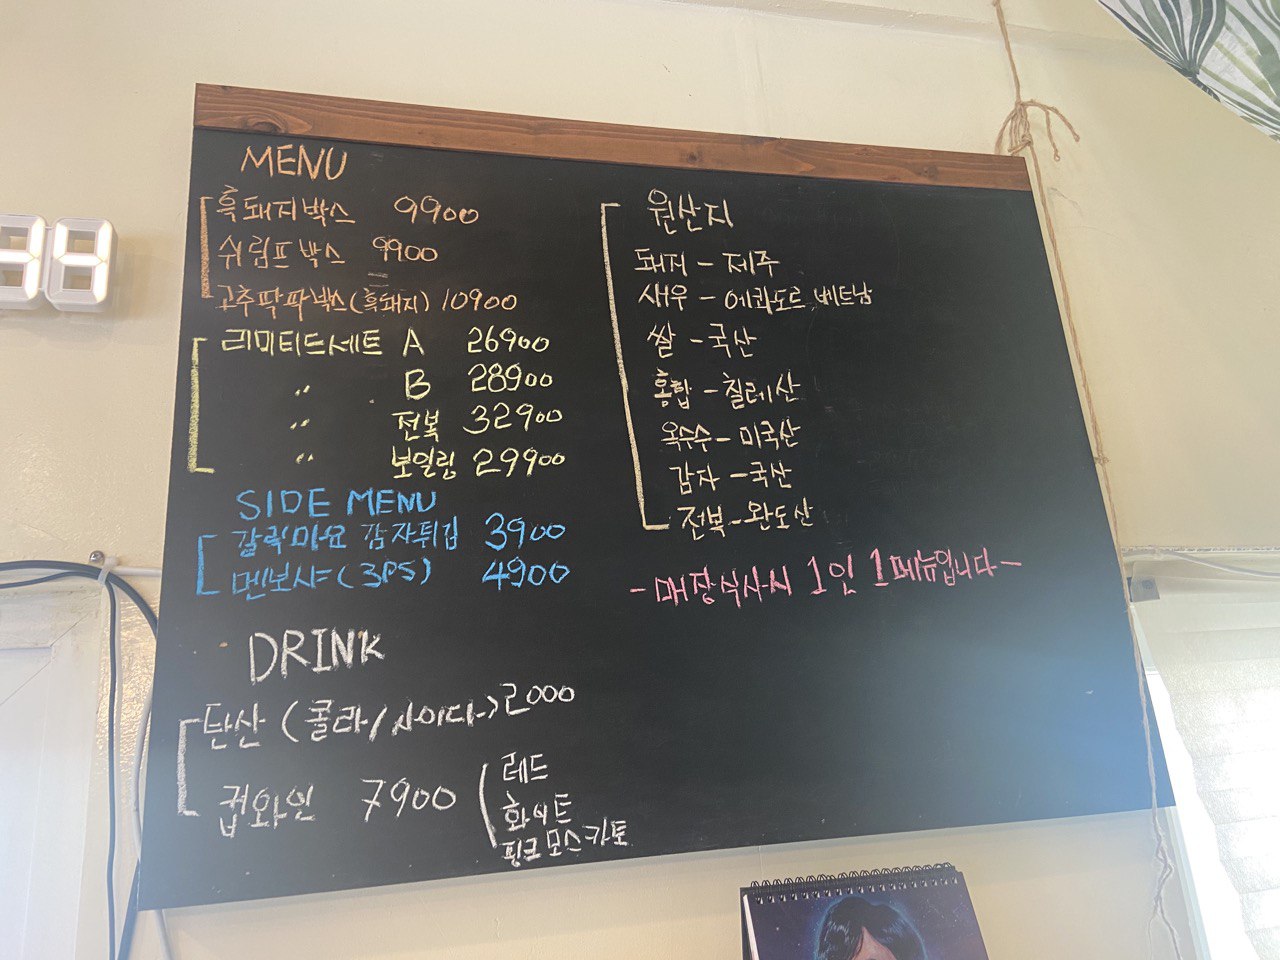 MENU
흑돼지박스 9900
쉬림프박스 9900
고추딱파박스(흑돼지) 10900
리미티드세트 A 26900
〃 B 28900
〃 전복 32900
〃 보일링 29900
SIDE MENU
갈릭마요 감자튀김 3900
멘보샤(3PS) 4900
DRINK
탄산 (콜라/사이다) 2000
컵와인 7900
레드
화이트
핑크모스카토
원산지
돼지 - 제주
새우 - 에콰도르 베트남
쌀 - 국산
홍합 - 칠레산
옥수수 - 미국산
감자 - 국산
전복 - 완도산
- 매장식사시 1인 1메뉴입니다 -